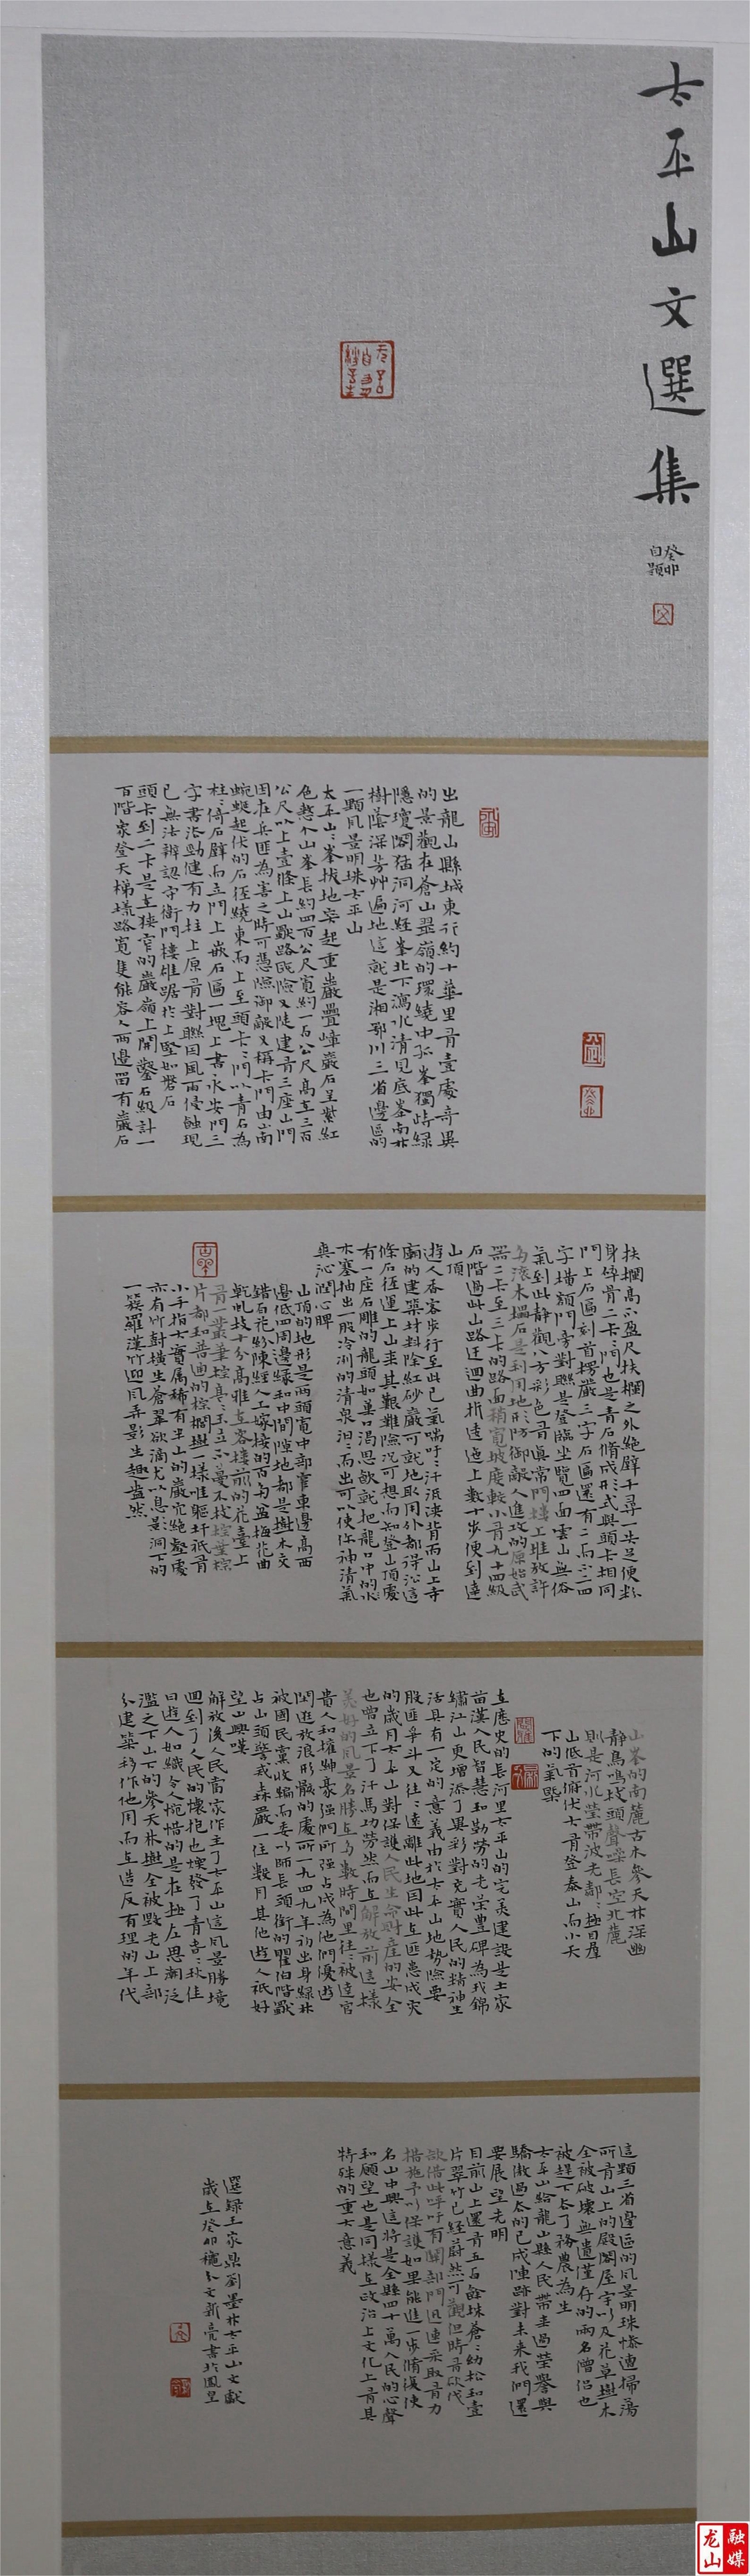 太平山文選集
癸卯
自題
出龍山縣城東行約十華里有壹處奇異
的景觀在蒼山翠嶺的環繞中孤峯獨峙綠
隱瓊閣猛洞河經峯北下瀉水清見底峯南林
樹蔭深芳艸遍地這就是湘鄂川三省邊區的
一顆風景明珠太平山
太平山峯拔地突起重巖疊嶂巖石呈紫紅
色整个山峯長約四百公尺寬約一百公尺高在三百
公尺以上壹條上山獸路既險又陡建有三座山門
因在兵匪為害之時可憑險御敵又稱卡門由山南
蜿蜒起伏的石徑繞東而上至頭卡卡門以青石為
柱倚石壁而立門上嵌石匾一塊上書永安門三
字書法勁健有力柱上原有對聯因風雨侵蝕現
已無法辨認守衛門樓雄踞於上堅如磐石
頭卡到二卡是在狹窄的巖嶺上開鑿石級計一
百階象登天梯墈路寬隻能容人兩邊留有巖石
扶欄高不盈尺扶欄之外絕壁千尋一失足便粉
身碎骨二卡門也是青石脩成形式與頭卡相同
門上石匾刻首楞嚴三字石匾還有二而三四
字墈額門旁對聯是登臨坐覽四面雲山無俗
氣到此靜觀八方彩色有真常門樓上堆放許
多滾木擂石是利用地形防御敵人進攻的原始武
器二卡至三卡的路面稍寬坡度較小有九十四級
石階過此山路迂迴曲折逶迤上數十步便到達
山頂
遊人香客步行至此已氣喘吁吁汗流浹背而山上寺
廟的建築材料除紅砂巖可就地取用外都得從這
條石徑運上山來其艱難險況可想而知登山頂處
有一座石雕的龍頭如菓口渴思飲就把龍口中的水
木塞抽出一股冷冽的清泉汩汩而出可以使你神清氣
爽沁潤心脾
山頂的地形是兩頭寬中部窄東邊高西
邊低四周邊緣和中間隙地都是樹木交
錯石花紛陳經人工嫁接的百年盆梅花曲
乾虬枝十分高雅在客樓前的花臺上
有叢葉棕真真玉立不蔓不枝棕葉棕
片都和普通的棕櫚樹一樣唯軀幹祇有
小手指大實属稀有半山的巖穴絕壑處
亦有竹對橫生蒼翠欲滴尤以息影洞下的
一簇羅漢竹迎風弄影生趣盎然
山峯的南麓古木參天林深幽
靜鳥鳴枝頭聲噪長空北麓
則是河水瑩帶波光鄰鄰極目羣
山低首俯伏大有登泰山而小天
下的氣槩
在歷史的長河里太平山的完美建設是土家
苗漢人民智慧和勤勞的光榮豐碑為我錦
繡江山更增添了異彩對充實人民的精神生
活具有一定的意義由於太平山地勢險要
股匪爭斗又往往遠離此地因此在匪患成灾
的歲月太平山對保護人民生命財産的安全
也曾立下了汗馬功勞然而在解放前這樣
美好的風景名勝在多數時間里往往被達官
貴人和擁鄉豪强們所强占成為他們優遊
閒逛放浪形骸的處所一九四九年初出身綠林
被國民黨收編而委以師長頭銜的瞿伯階獸
占山頭警戒森嚴一住數月其他遊人祇好
望山興嘆
解放後人民當家作主了太平山這風景勝境
迴到了人民的懷抱也煥發了青春秋佳
日遊人如織令人惋惜的是在極左思潮泛
濫之下山下的參天林樹全被毀光山上部
分建築移作他用而在造反有理的年代
這顆三省邊區的風景明珠慘遭掃蕩
所有山上的殿閣屋宇以及花草樹木
全被破壞無遺僅存的兩名僧侣也
被趕下太了務農為生
太平山給龍山縣人民帶來過榮譽與
驕傲過太的已成陳跡對未來我們還
要展望光明
目前山上還有五百餘珠蒼蒼幼松和壹
片翠竹已經蔚然可觀但時有砍伐
欲借此呼吁有關部門迅速采取有力
措施予以保護如果能進一步脩復使
名山中興這將是全縣四十萬人民的心聲
和願望也是同樣在政治上文化上有其
特殊的重大意義
選録王家鼎劉墨林太平山文獻
歲在癸卯穐分文新亮書於鳳皇
龙山
融媒